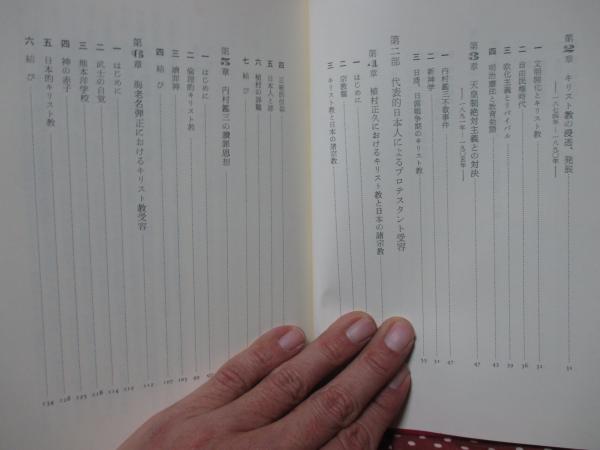 第2章 キリスト教の浸透、発展
――一八七四年―一八九〇年――
一 文明開化とキリスト教 31
二 自由民権時代 36
三 欧化主義とリバイバル 39
四 明治憲法と教育勅語 43
第3章 天皇制絶対主義との対決 47
――一八九一年―一九〇五年――
一 内村鑑三不敬事件 47
二 新神学 51
三 日清、日露戦争期のキリスト教 55
第二部 代表的日本人によるプロテスタント受容
第4章 植村正久におけるキリスト教と日本の諸宗教
一 はじめに
二 宗教観
三 キリスト教と日本の諸宗教
四
五 日本人と罪
六 植村の課題
七 結び
第5章 内村鑑三の贖罪思想
一 はじめに
二 倫理的キリスト教 99
三 贖罪神 103
四 結び 107
第6章 海老名弾正におけるキリスト教受容 112
一 はじめに 112
二 武士の自覚 114
三 熊本洋学校 118
四 神の赤子 123
五 日本的キリスト教 128
六 結び 134